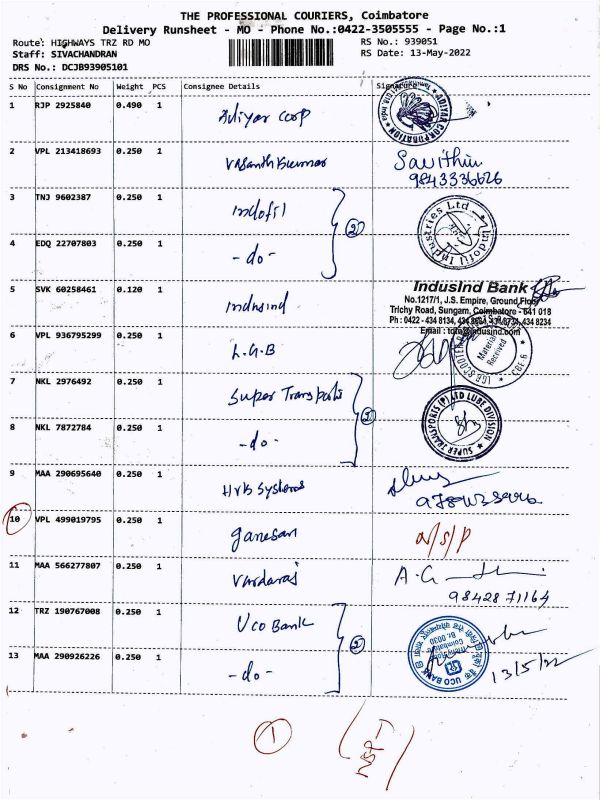 THE PROFESSIONAL COURIERS, Coimbatore
Delivery Runsheet - MO - Phone No.:0422-3505555 - Page No.:1
Route: HIGHWAYS TRZ RD MO RS No.: 939051
Staff: SIVACHANDRAN RS Date: 13-May-2022
DRS No.: DCJB93905101
S No Consignment No Weight PCS Consignee Details Signature
1 RJP 2925840 0.490 1 Adiyar Corp ADIYAR CORPORATION
2 VPL 213418693 0.250 1 Vasanth Kumar Savithiri
9843336626
3 TNJ 9602387 0.250 1 Indofil Indofil Industries Ltd
4 EDQ 22707803 0.250 1 -do-
2
5 SVK 60258461 0.120 1 Indusind IndusInd Bank
No.1217/1, J.S. Empire, Ground Floor
Trichy Road, Sungam, Coimbatore - 641 018
Ph : 0422 - 434 8134, 434 8234
Email :
6 VPL 936795299 0.250 1 L.G.B Material Received
7 NKL 2976492 0.250 1 Super Transports SUPER TRANSPORTS (P) LTD LUBE DIVISION
8 NKL 7872784 0.250 1 -do-
2
9 MAA 290695640 0.250 1 HVB Systems
10 VPL 499019795 0.250 1 Ganesan a/s/p
11 MAA 566277807 0.250 1 Vardaraj A.G
98428 71164
12 TRZ 190767008 0.250 1 UCO Bank UCO BANK
13 MAA 290926226 0.250 1 -do- 13/5/22
2
1